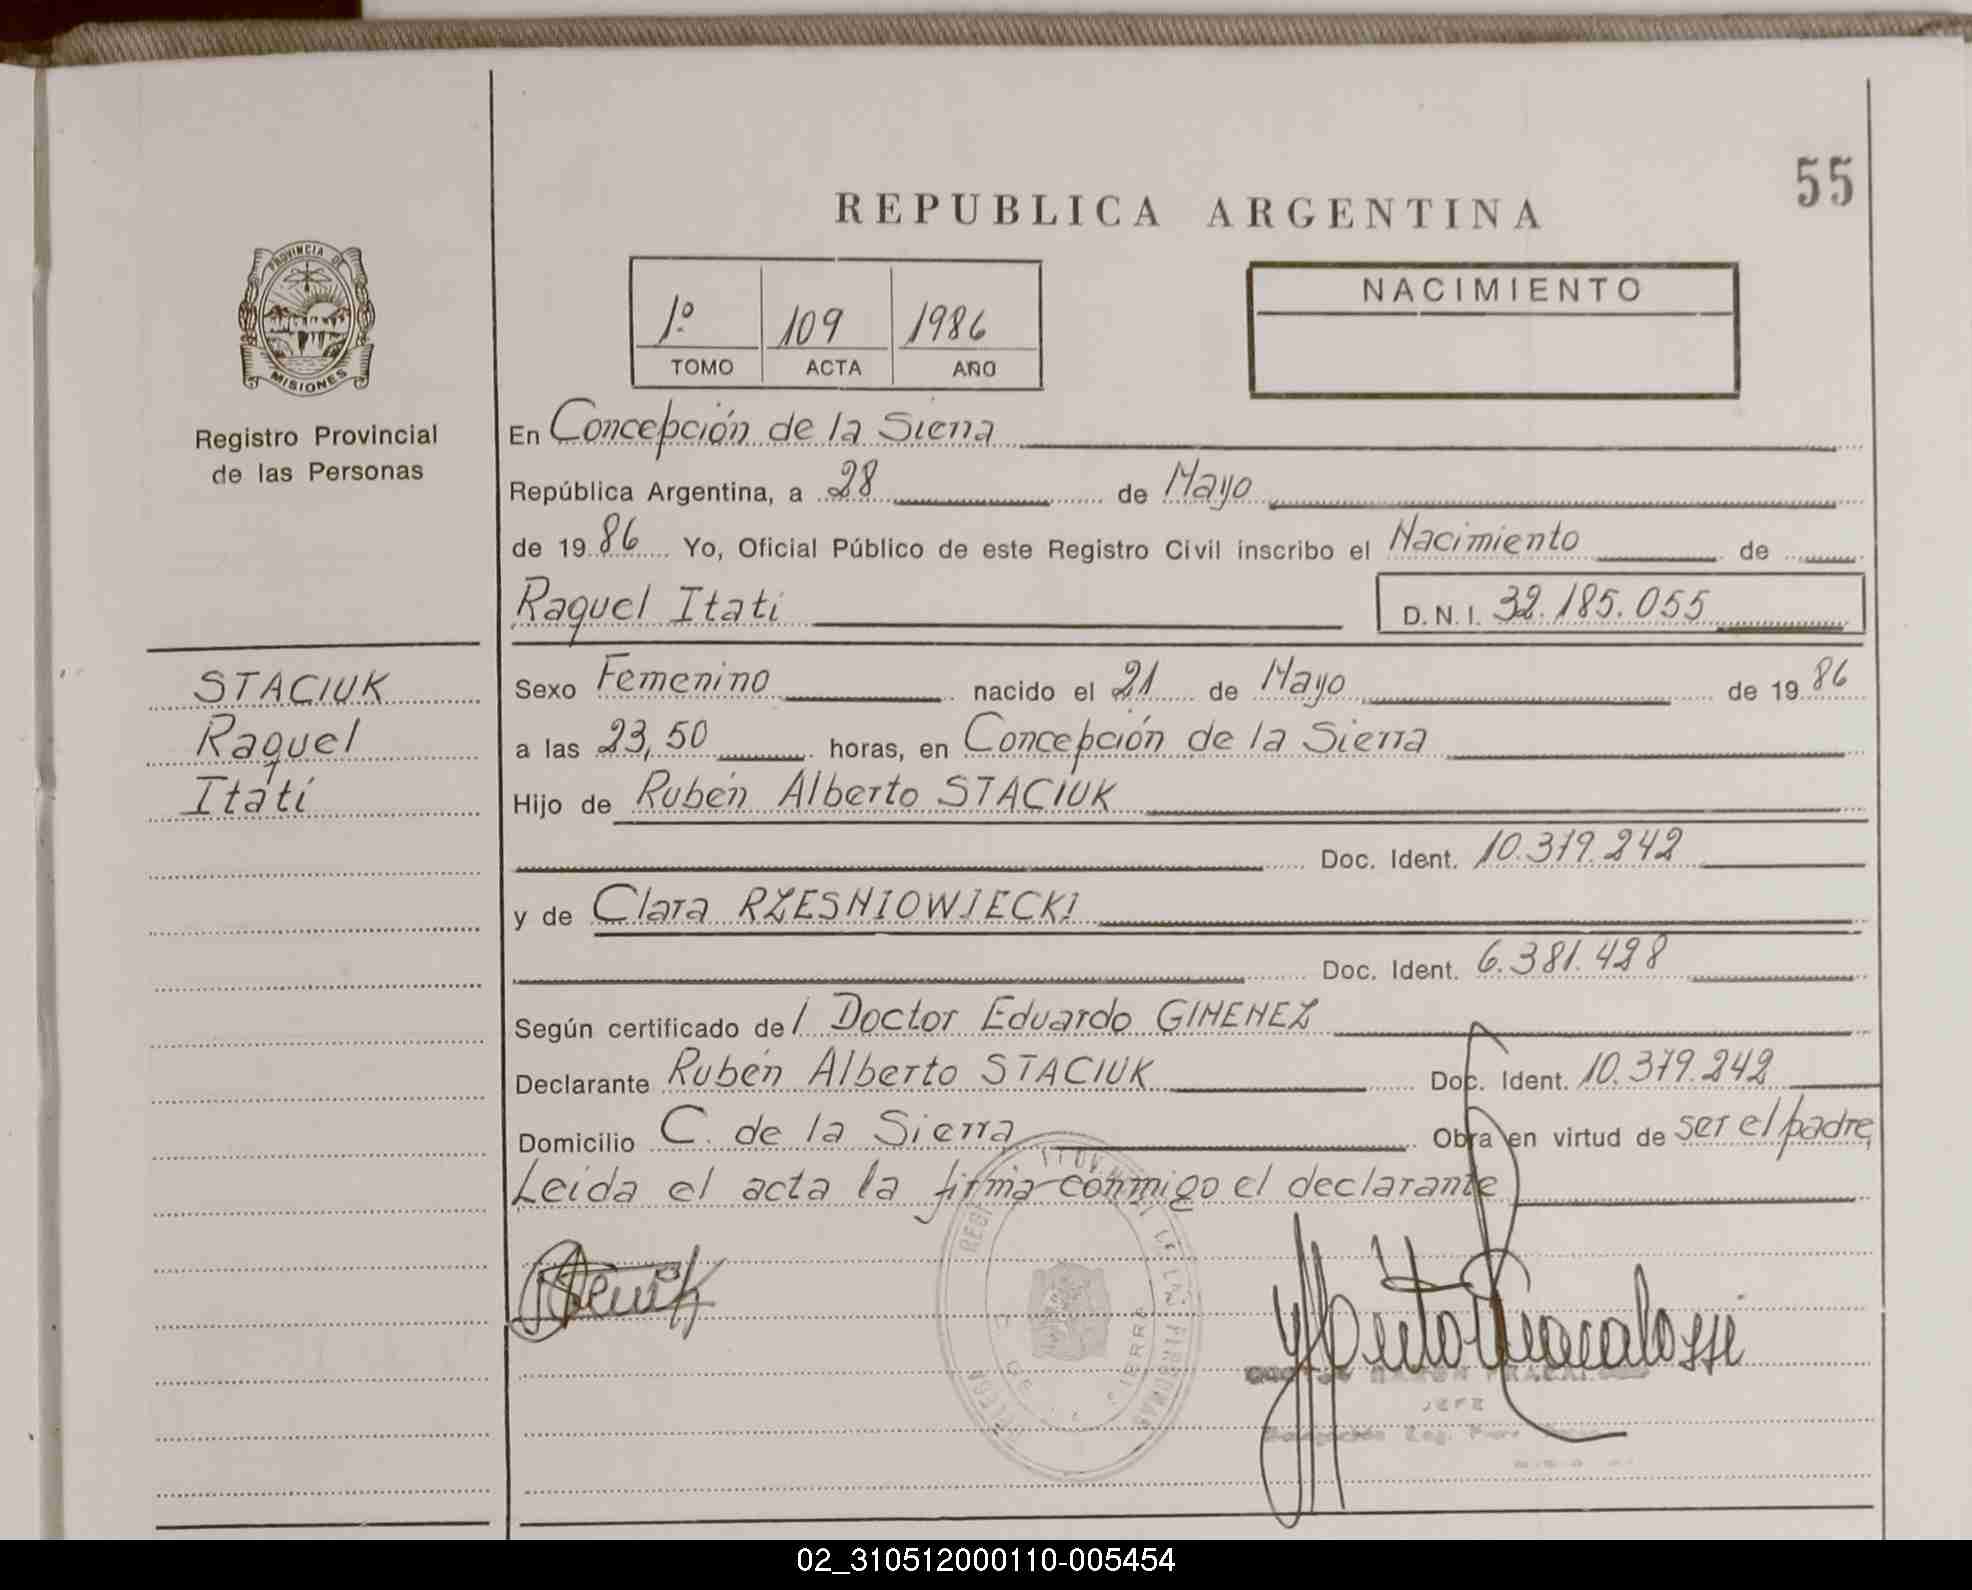 55
REPUBLICA ARGENTINA
PROVINCIA DE
MISIONES
Registro Provincial
de las Personas
1º 109 1986
TOMO ACTA AÑO
NACIMIENTO
En Concepción de la Sierra
República Argentina, a 28 de Mayo
de 1986 Yo, Oficial Público de este Registro Civil inscribo el Nacimiento de
Raquel Itatí D.N.I. 32.185.055
STACIUK
Raquel
Itatí
Sexo Femenino nacido el 21 de Mayo de 1986
a las 23,50 horas, en Concepción de la Sierra
Hijo de Rubén Alberto STACIUK
Doc. Ident. 10.379.242
y de Clara RZESNIOWIECKI
Doc. Ident. 6.381.428
Según certificado del Doctor Eduardo GIMENEZ
Declarante Rubén Alberto STACIUK Doc. Ident. 10.379.242
Domicilio C. de la Sierra Obra en virtud de ser el padre,
Leida el acta la firma conmigo el declarante
JEFE
02_310512000110-005454